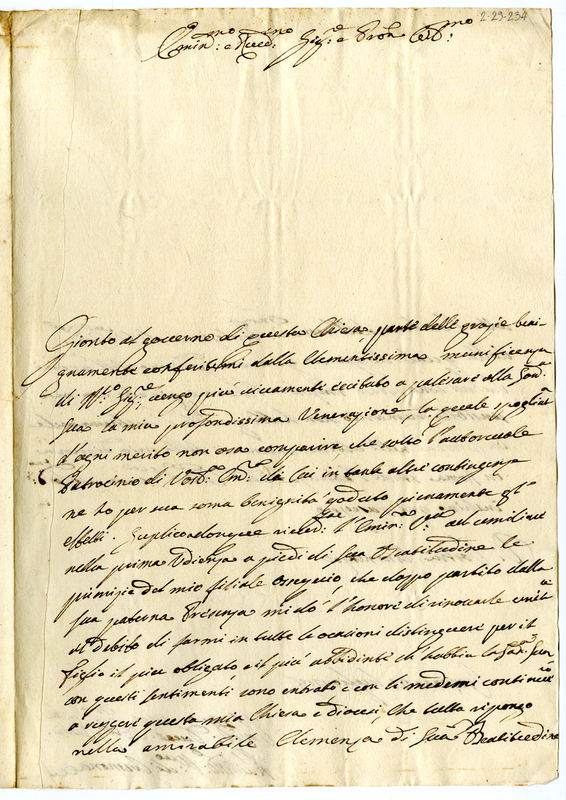 2-29-234
Emin.mo e Rev.mo Sig.re e Pron Col.mo
Gionto al governo di questa Chiesa, parte delle grazie beni-
gnamente conferitemi dalla Clementissima munificenza
di N.ro Sig.re vengo più vivamente eccitato a palesare alla San.tà
sua la mia profondissima Venerazione, la quale spogliat
d'ogni merito non osa comparire che sotto l'autorevole
Patrocinio di Vost.a Em.za da cui in tante altre contingenze
ne ho per sua somma benignità veduto pienamente gl'
effetti. Suplico adonque l'Emin. ad umiliare
nella prima Udienza a piedi di sua Beatitudine le
primizie del mio filiale Ossequio, che doppo partito dalla
sua paterna Presenza mi dò l'honore di rinovarle
il debito di farmi in tutte le ocasioni distinguere per il
figlio il più obligato e il più ubbidiente ch'habbia la San.tà sua
con questi sentimenti sono entrato e con li medemi continuerò
a reggere questa mia Chiesa e diocesi, che tutta ripongo
nella amirabile Clemenza di Sua Beatitudine